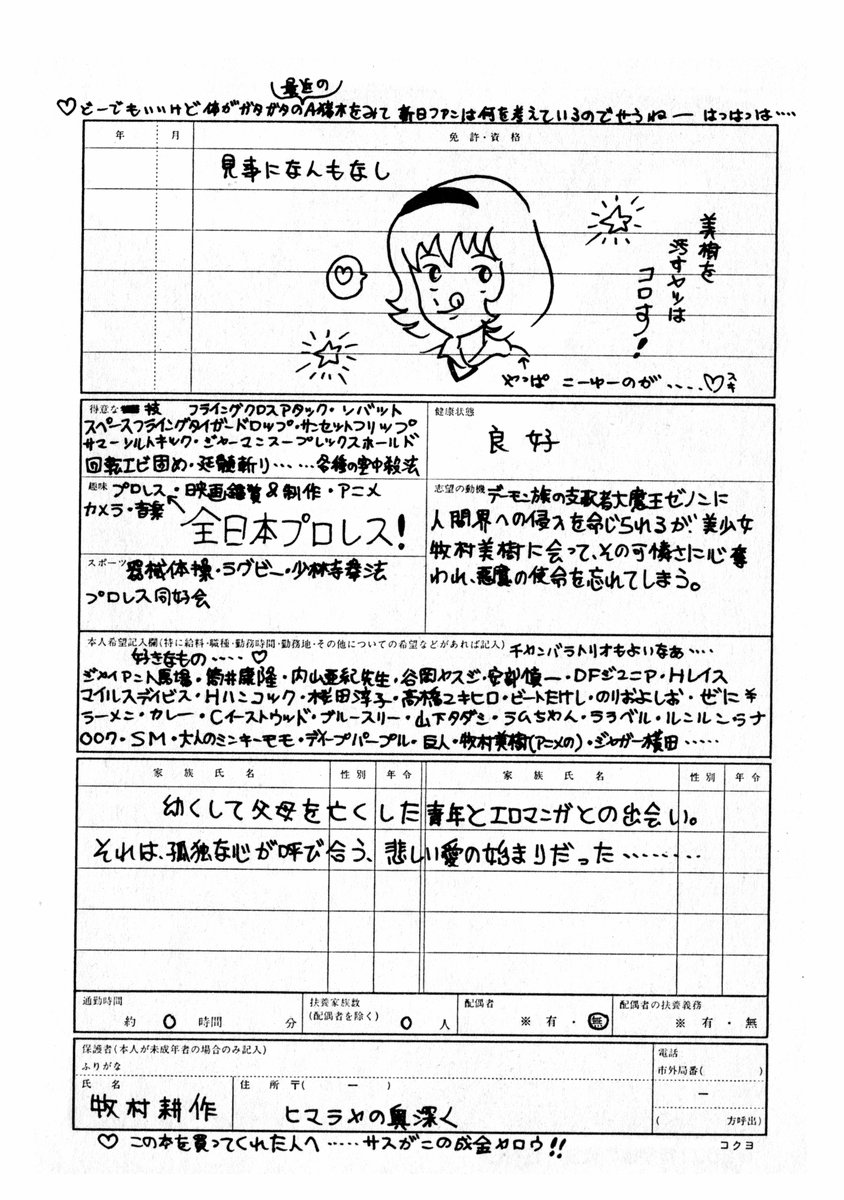 最近の
♡どーでもいいけど体がガタガタのA猪木をみて新日ファンは何を考えているのでせうねー はっはっは‥‥
年 月 免許・資格
見事になんもなし
美樹を
汚すヤツは
コロす!
やっぱ こーゆーのが‥‥‥♡スキ
得意な 技 フライングクロスアタック・トペ
スペースフライングタイガードロップ・サンセットフリップ
サマーソルトキック・ジャーマンスープレックスホールド
回転エビ固め・延髄斬り‥‥‥各種の空中殺法
健康状態
良好
趣味 プロレス・映画鑑賞&制作・アニメ
カメラ・音楽
全日本プロレス!
志望の動機 デーモン族の支配者大魔王ゼノンに
人間界への侵入を命じられるが、美少女
牧村美樹に会って、その可憐さに心奪
われ、悪魔の使命を忘れてしまう。
スポーツ 器械体操・ラグビー・少林寺拳法
プロレス同好会
本人希望記入欄(特に給料・職種・勤務時間・勤務地・その他についての希望などがあれば記入) チャンバラトリオもよいなあ‥‥
好きなもの‥‥♡
ジャイアント馬場・筒井康隆・内山亜紀先生・谷岡ヤスジ・安部慎一・DFジュニア・Hレイス
マイルスデイビス・Hハンコック・桜田淳子・高橋ユキヒロ・ビートたけし・のりおよしお・ぜに¥
ラーメン・カレー・Cイーストウッド・ブルースリー・山下タダシ・ラムちゃん・ララベル・ルンルンラナ
007・SM・大人のミンキーモモ・デイープパープル・巨人・牧村美樹(アニメの)・ジャガー横田‥‥‥
家族氏名 性別 年令 家族氏名 性別 年令
幼くして父母を亡くした青年とエロマンガとの出会い。
それは、孤独な心が呼び合う、悲しい愛の始まりだった‥‥‥‥
通勤時間
約 0 時間 分
扶養家族数
(配偶者を除く) 0 人
配偶者
※ 有・無
配偶者の扶養義務
※ 有・無
保護者(本人が未成年者の場合のみ記入)
ふりがな
氏 名
牧村耕作
住 所 〒( ー )
ヒマラヤの奥深く
電話
市外局番( )
ー
( 方呼出)
♡ この本を買ってくれた人へ‥‥‥サスがこの成金ヤロウ!!
コクヨ